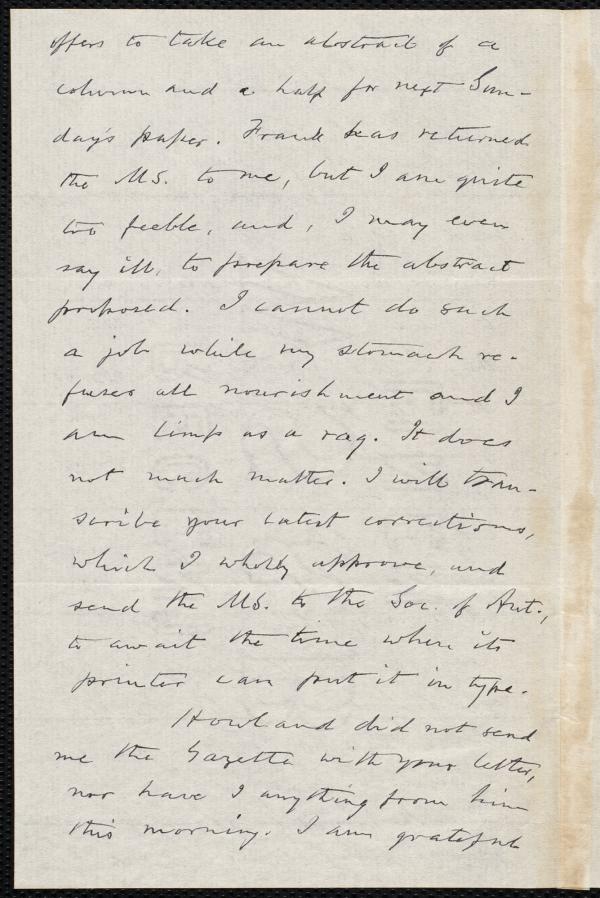 offers to take an abstract of a
column and a half for next Sun-
day's paper. Frank has returned
the MS. to me, but I am quite
too feeble, and, I may even
say ill, to prepare the abstract
proposed. I cannot do such
a job while my stomach re-
fuses all nourishment and I
am limp as a rag. It does
not much matter. I will tran-
scribe your latest corrections,
which I wholly approve, and
send the MS. to the Soc. of Ant.,
to await the time when its
printer can put it in type.
Howland did not send
me the Gazette with your letter,
nor have I anything from him
this morning. I am grateful